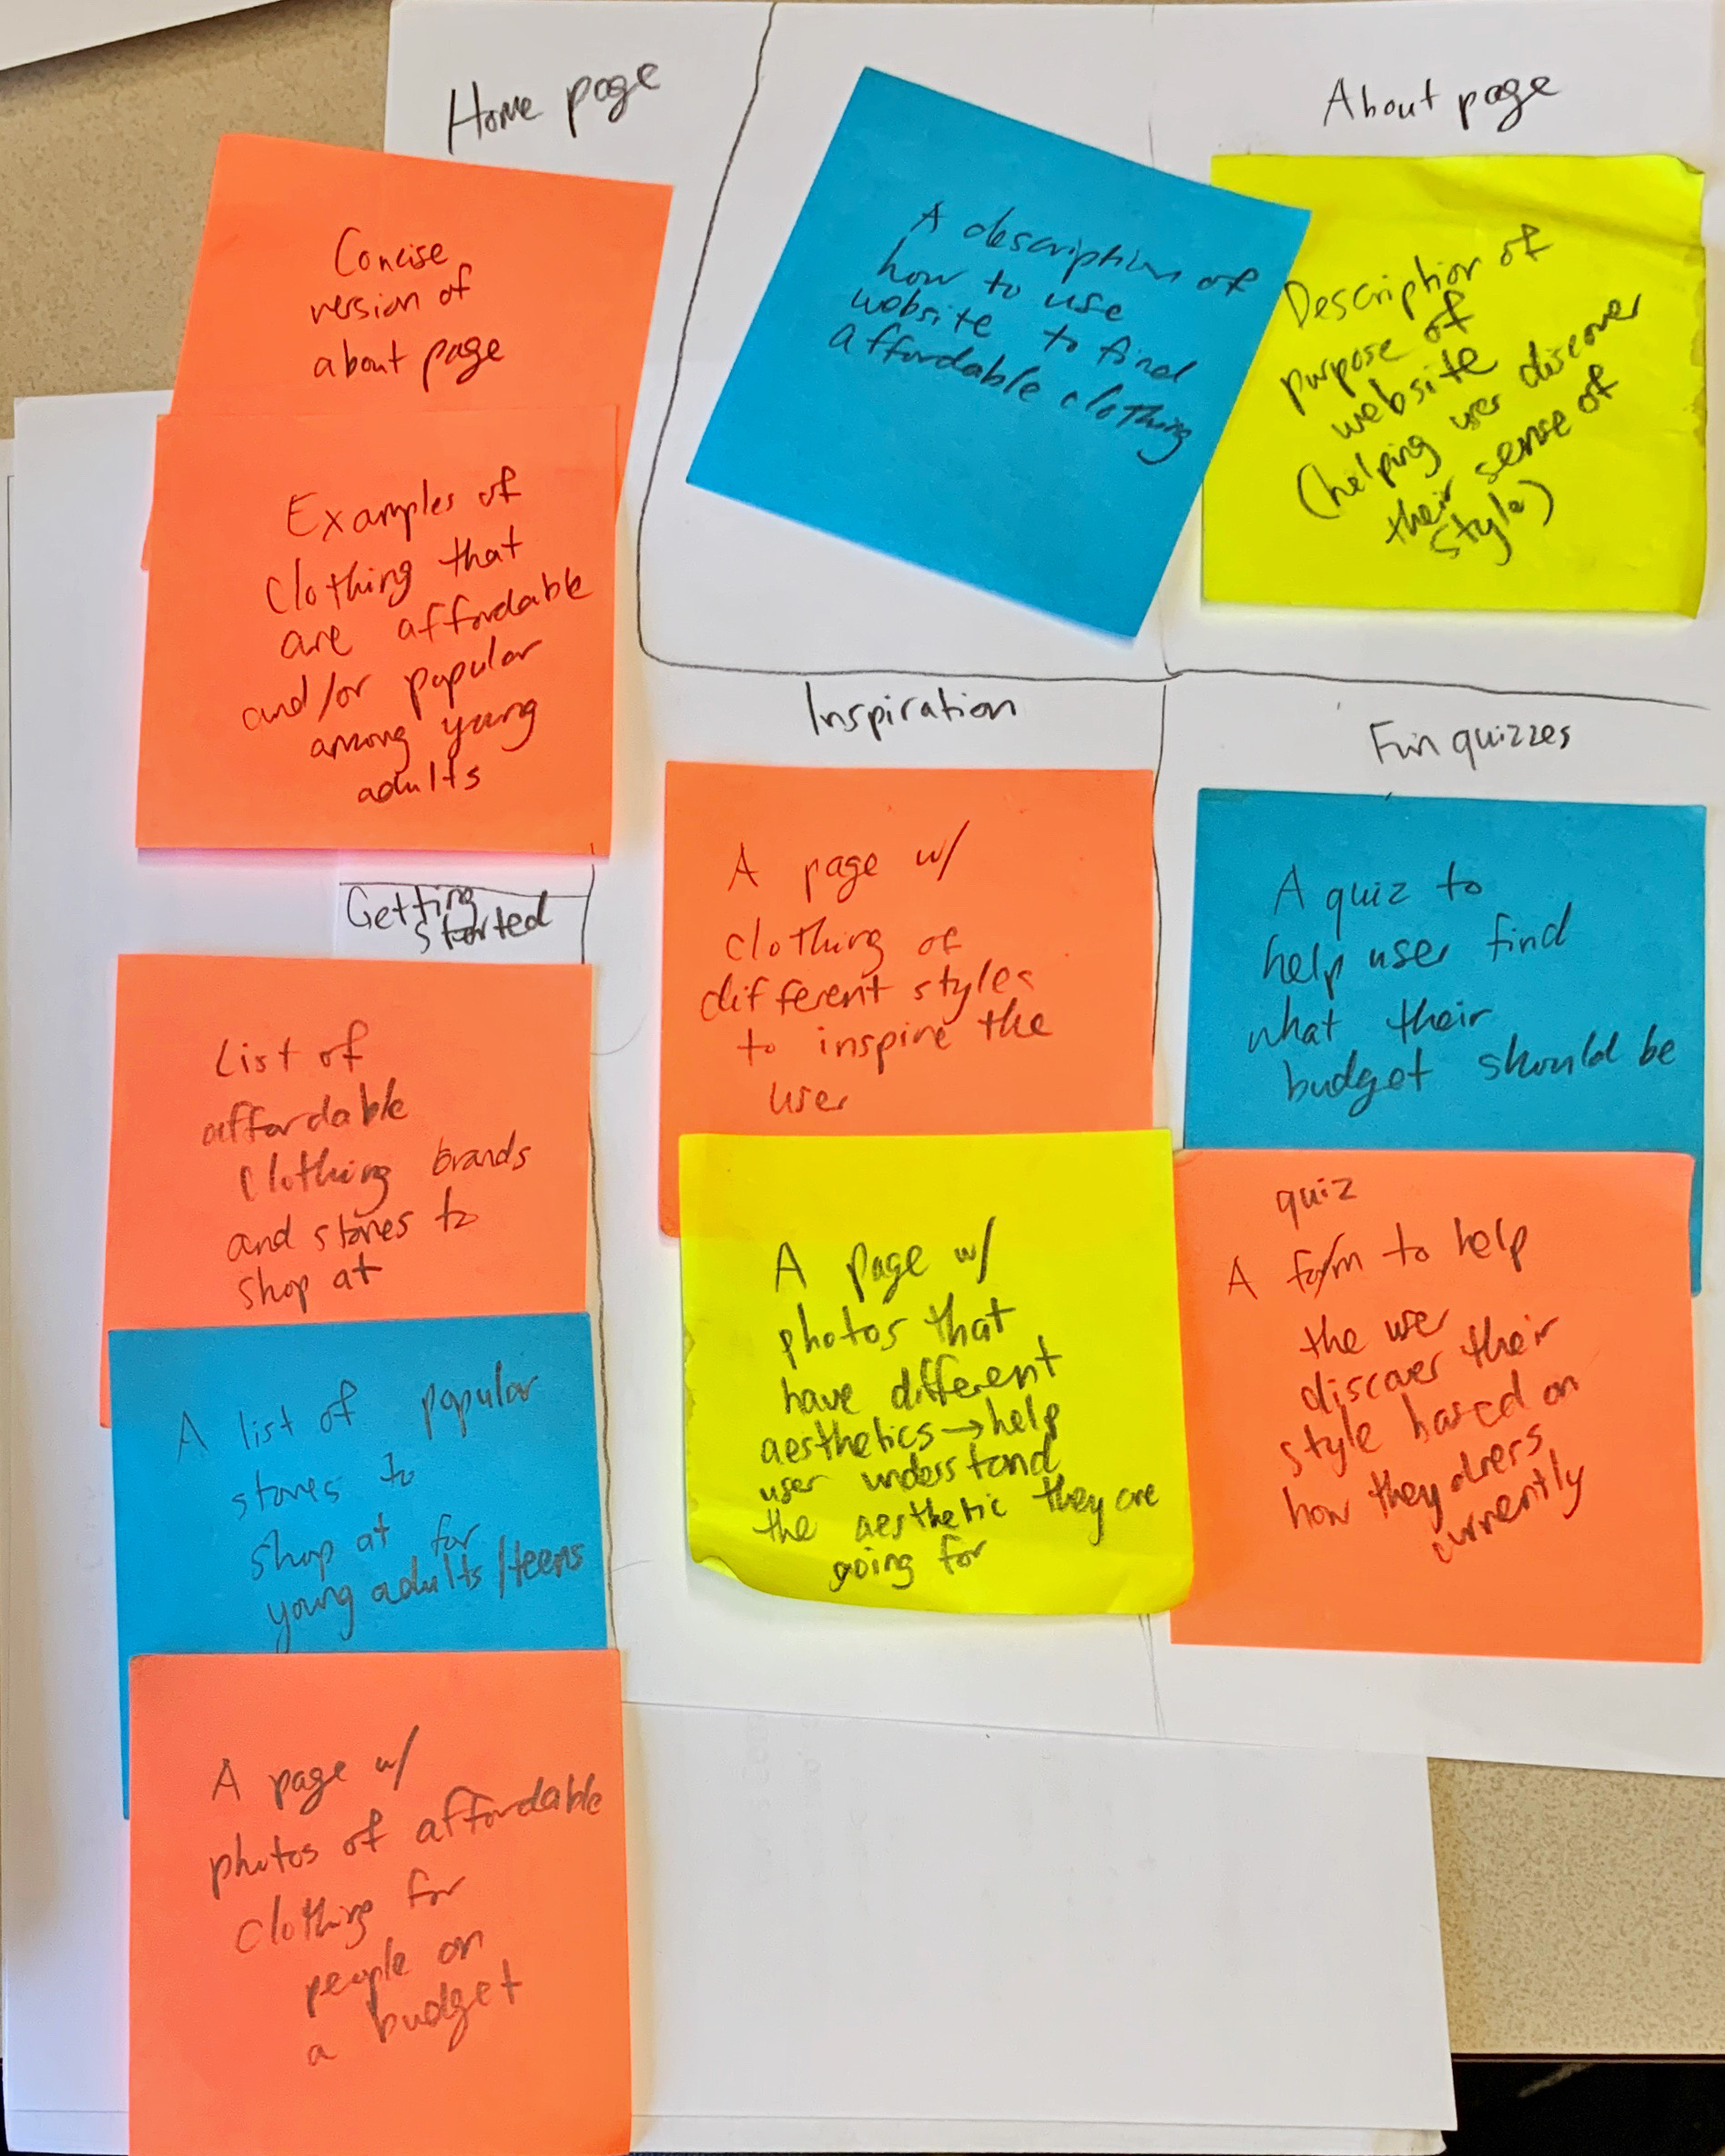 Home page
Concise
version of
about page
Examples of
clothing that
are affordable
and/or popular
among young
adults
A description of
how to use
website to find
affordable clothing
About page
Description of
purpose of
website
(helping user discover
their sense of
style)
Getting
started
List of
affordable
clothing brands
and stores to
shop at
A list of popular
stores to
shop at for
young adults/teens
A page w/
photos of affordable
clothing for
people on
a budget
Inspiration
A page w/
clothing of
different styles
to inspire the
user
A page w/
photos that
have different
aesthetics→help
user understand
the aesthetic they are
going for
Fun quizzes
A quiz to
help user find
what their
budget should be
quiz
A form to help
the user
discover their
style based on
how they dress
currently